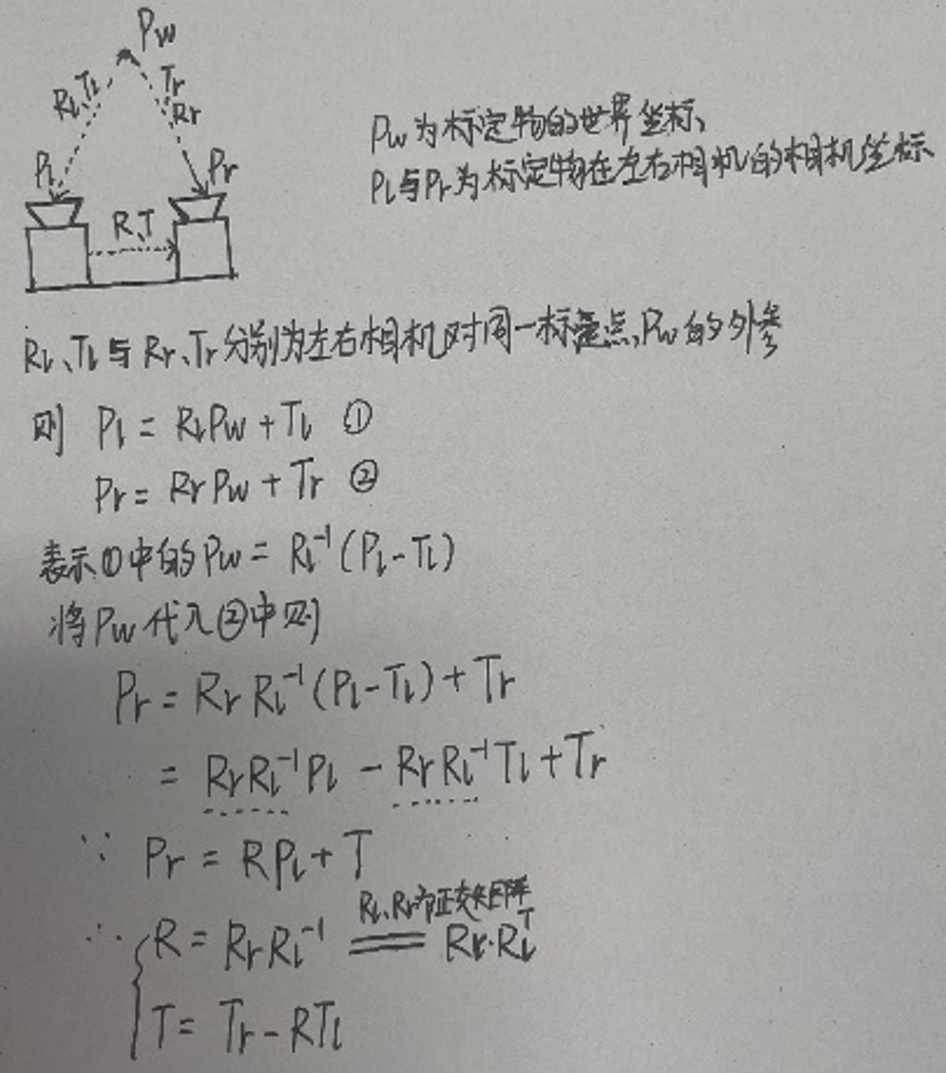 Pw
Rl、Tl
Tr
Rr
Pl
Pr
R、T
Pw为标定物的世界坐标、
Pl与Pr为标定物在左右相机的相机坐标
Rl、Tl与Rr、Tr分别为左右相机对同一标定点Pw的外参
则 Pl = RlPw + Tl ①
Pr = RrPw + Tr ②
表示①中的Pw = Rl⁻¹(Pl-Tl)
将Pw代入②中则
Pr = RrRl⁻¹(Pl-Tl) + Tr
= RrRl⁻¹Pl - RrRl⁻¹Tl + Tr
∵ Pr = RPl + T
Rl、Rr都正交矩阵
∴ { R = RrRl⁻¹ == Rr·Rlᵀ
T = Tr - RTl